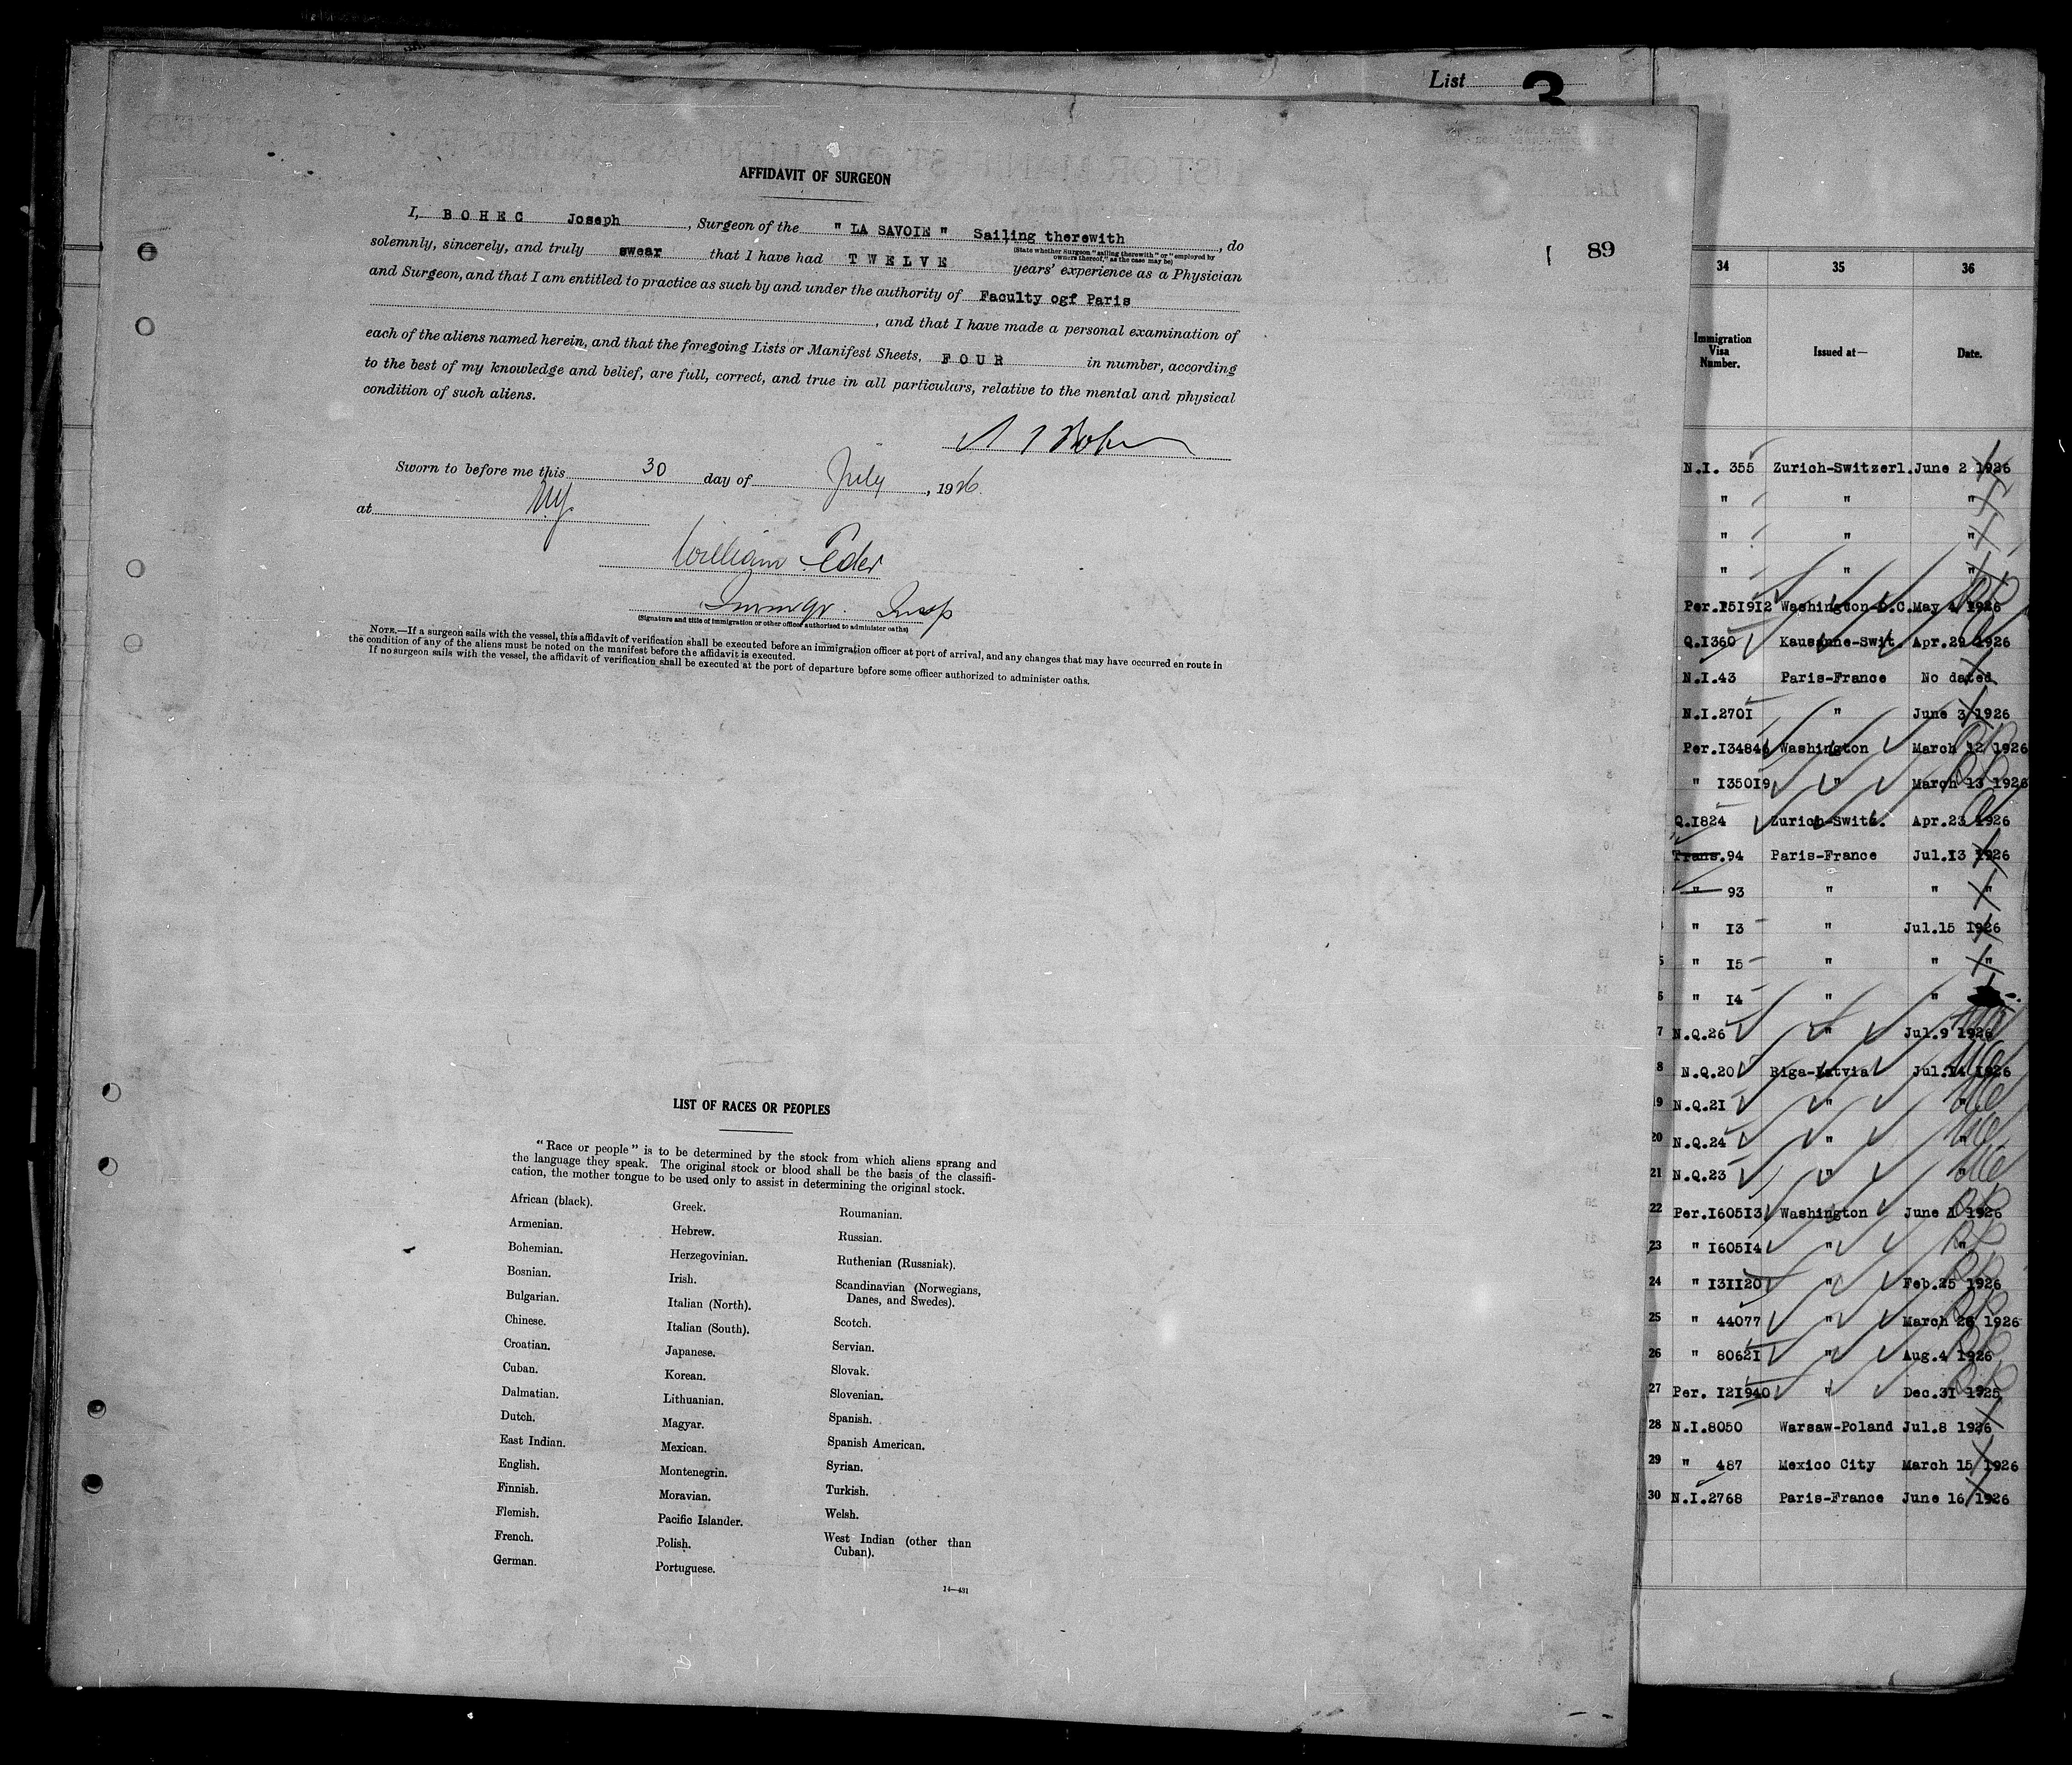 List 3
AFFIDAVIT OF SURGEON
I, BOHEC Joseph, Surgeon of the " LA SAVOIE " Sailing therewith, do
(State whether Surgeon "sailing therewith" or "employed by
owners thereof," as the case may be)
solemnly, sincerely, and truly swear that I have had TWELVE years' experience as a Physician
and Surgeon, and that I am entitled to practice as such by and under the authority of Faculty ogf Paris
, and that I have made a personal examination of
each of the aliens named herein, and that the foregoing Lists or Manifest Sheets, FOUR in number, according
to the best of my knowledge and belief, are full, correct, and true in all particulars, relative to the mental and physical
condition of such aliens.
Sworn to before me this 30 day of July, 1926.
at NY
William Eder
Immgr. Insp
(Signature and title of immigration or other officer authorized to administer oaths)
NOTE.—If a surgeon sails with the vessel, this affidavit of verification shall be executed before an immigration officer at port of arrival, and any changes that may have occurred en route in
the condition of any of the aliens must be noted on the manifest before the affidavit is executed.
If no surgeon sails with the vessel, the affidavit of verification shall be executed at the port of departure before some officer authorized to administer oaths.
LIST OF RACES OR PEOPLES
"Race or people" is to be determined by the stock from which aliens sprang and
the language they speak. The original stock or blood shall be the basis of the classifi-
cation, the mother tongue to be used only to assist in determining the original stock.
African (black).
Armenian.
Bohemian.
Bosnian.
Bulgarian.
Chinese.
Croatian.
Cuban.
Dalmatian.
Dutch.
East Indian.
English.
Finnish.
Flemish.
French.
German.
Greek.
Hebrew.
Herzegovinian.
Irish.
Italian (North).
Italian (South).
Japanese.
Korean.
Lithuanian.
Magyar.
Mexican.
Montenegrin.
Moravian.
Pacific Islander.
Polish.
Portuguese.
Roumanian.
Russian.
Ruthenian (Russniak).
Scandinavian (Norwegians,
Danes, and Swedes).
Scotch.
Servian.
Slovak.
Slovenian.
Spanish.
Spanish American.
Syrian.
Turkish.
Welsh.
West Indian (other than
Cuban).
14—431
89
34 35 36
Immigration
Visa
Number. Issued at— Date.
N.I. 355 Zurich-Switzerl. June 2 1926
" " "
" " "
" " "
Per.151912 Washington-D.C. May 4 1926
Q.1360 Kausanne-Swit. Apr.29 1926
N.I.43 Paris-France No dated
N.I.2701 " June 3 1926
Per.134846 Washington March 12 1926
" 135019 " March 13 1926
Q.1824 Zurich-Switz. Apr.23 1926
Trans.94 Paris-France Jul.13 1926
" 93 " " "
" 13 " Jul.15 1926
5 " 15 " " "
6 " 14 " "
7 N.Q.26 " Jul.9 1926
8 N.Q.20 Riga-Latvia Jul.14 1926
19 N.Q.21 " "
20 N.Q.24 " "
21 N.Q.23 " "
22 Per.160513 Washington June 1 1926
23 " 160514 " "
24 " 131120 " Feb.25 1926
25 " 44077 " March 26 1926
26 " 80621 " Aug.4 1926
27 Per. 121940 " Dec.31 1925
28 N.I.8050 Warsaw-Poland Jul.8 1926
29 " 487 Mexico City March 15 1926
30 N.I.2768 Paris-France June 16 1926